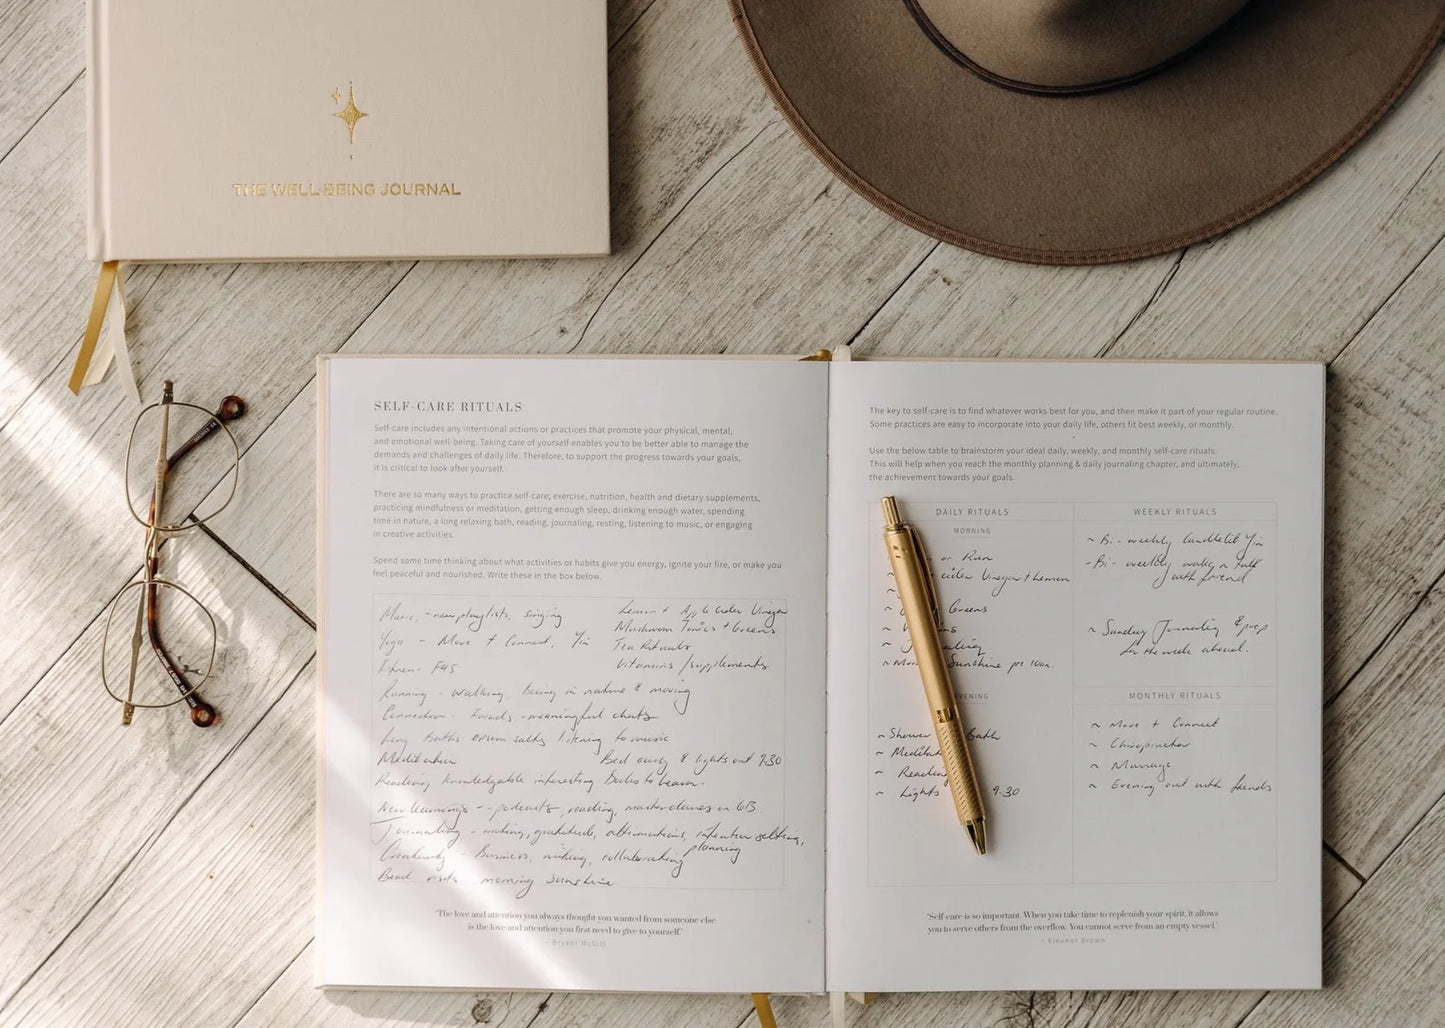 THE WELL-BEING JOURNAL
SELF-CARE RITUALS
Self-care includes any intentional actions or practices that promote your physical, mental,
and emotional well-being. Taking care of yourself enables you to be better able to manage the
demands and challenges of daily life. Therefore, to support the progress towards your goals,
it is critical to look after yourself.
There are so many ways to practice self-care; exercise, nutrition, health and dietary supplements,
practicing mindfulness or meditation, getting enough sleep, drinking enough water, spending
time in nature, a long relaxing bath, reading, journaling, resting, listening to music, or engaging
in creative activities.
Spend some time thinking about what activities or habits give you energy, ignite your fire, or make you
feel peaceful and nourished. Write these in the box below.
Music - new playlists, singing
Yoga - Move + Connect, Yin
F45
Running - walking, Being in nature & moving
Connection - Friends - meaningful chats
Long Baths epsom salts, listening to music
Meditation
Reading knowledgable interesting Books to
New learnings - podcasts, reading, masterclasses on
Journaling - writing, gratitude, affirmations, intention setting,
planning
Creativity - Business, writing, collaborating
Beach visits - morning Sunshine
Lemon + Apple Cider Vinegar
Mushroom Tonics + Greens
Tea Rituals
Vitamins/supplements
Bed early & lights out 9.30
"The love and attention you always thought you wanted from someone else
is the love and attention you first need to give to yourself."
- Bryant McGill
The key to self-care is to find whatever works best for you, and then make it part of your regular routine.
Some practices are easy to incorporate into your daily life, others fit best weekly, or monthly.
Use the below table to brainstorm your ideal daily, weekly, and monthly self-care rituals.
This will help when you reach the monthly planning & daily journaling chapter, and ultimately,
the achievement towards your goals.
DAILY RITUALS
MORNING
or Run
cider Vinegar + Lemon
Greens
~
~
~ Sunshine pre 10am.
EVENING
~ Shower Bath
~
~ Reading
~ Lights 9.30
WEEKLY RITUALS
~ Bi-weekly Candlelit Yin
- Bi-weekly walk n talk
with friend
~ Sunday Journaling & prep
for the week ahead.
MONTHLY RITUALS
~ Move + Connect
~ Chiropractor
~ Massage
~ Evening out with friends
"Self care is so important. When you take time to replenish your spirit, it allows
you to serve others from the overflow. You cannot serve from an empty vessel."
- Eleanor Brown